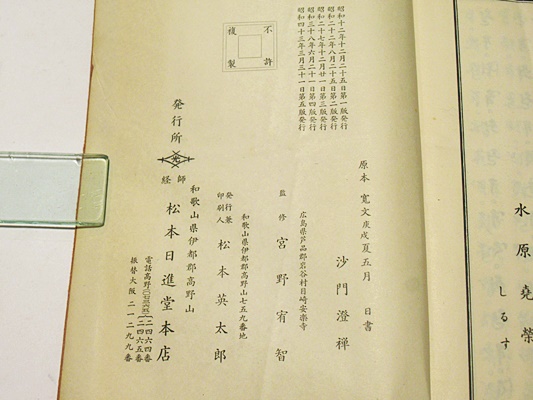 水原堯榮
しるす
昭和十二年十二月二十五日第一版発行
昭和二十二年八月二十五日第二版発行
昭和二十七年十二月廿一日第三版発行
昭和三十八年六月二十一日第四版発行
昭和四十三年三月三十一日第五版発行
不許
複製
原本 寛文庚戌夏五月 日書
沙門澄禅
広島県芦品郡岩谷村目崎安楽寺
監修 宮野宥智
和歌山県伊都郡高野山七五九番地
発行兼
印刷人 松本英太郎
和歌山県伊都郡高野山
発行所 経師 松本日進堂本店
電話高野
二四六四番
二四六五番
振替大阪二一二九九番